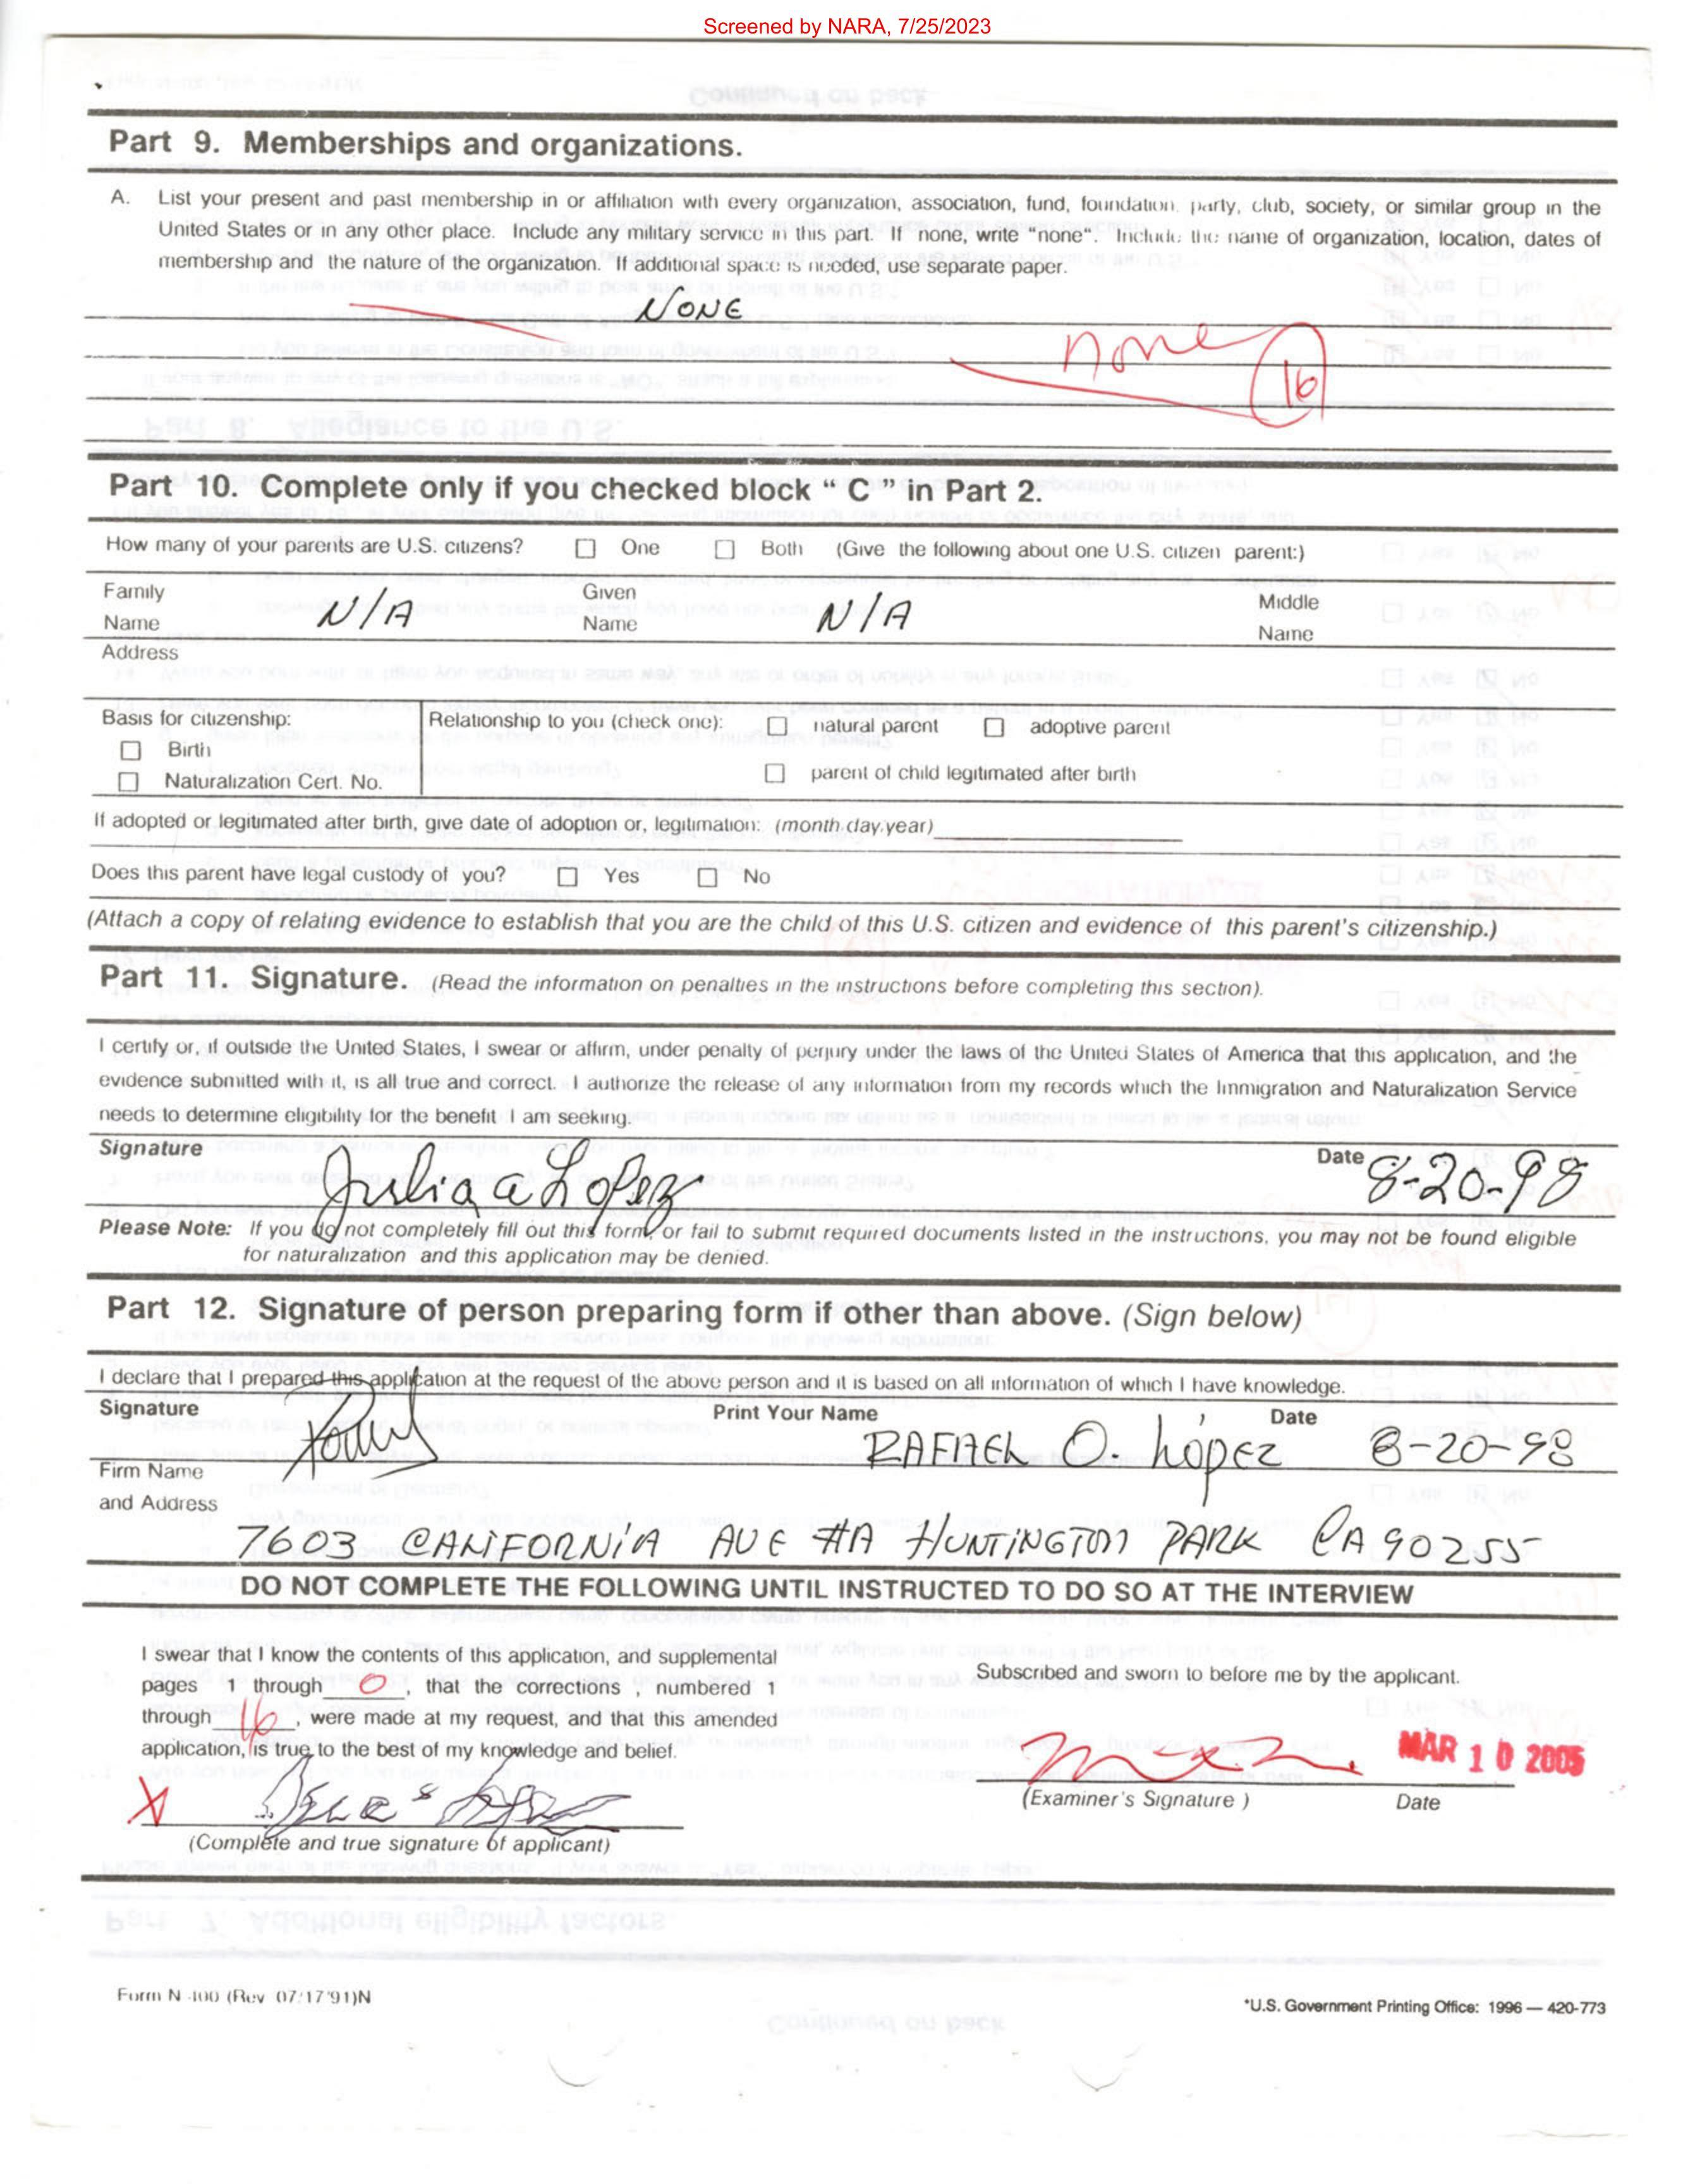 Screened by NARA, 7/25/2023
Part 9. Memberships and organizations.
A. List your present and past membership in or affiliation with every organization, association, fund, foundation, party, club, society, or similar group in the
United States or in any other place. Include any military service in this part. If none, write "none". Include the name of organization, location, dates of
membership and the nature of the organization. If additional space is needed, use separate paper.
NONE
none
16
Part 10. Complete only if you checked block " C " in Part 2.
How many of your parents are U.S. citizens? One Both (Give the following about one U.S. citizen parent:)
Family Name N/A Given Name N/A Middle Name
Address
Basis for citizenship: Relationship to you (check one): natural parent adoptive parent
Birth
Naturalization Cert. No. parent of child legitimated after birth
If adopted or legitimated after birth, give date of adoption or, legitimation: (month,day,year)
Does this parent have legal custody of you? Yes No
(Attach a copy of relating evidence to establish that you are the child of this U.S. citizen and evidence of this parent's citizenship.)
Part 11. Signature. (Read the information on penalties in the instructions before completing this section).
I certify or, if outside the United States, I swear or affirm, under penalty of perjury under the laws of the United States of America that this application, and the
evidence submitted with it, is all true and correct. I authorize the release of any information from my records which the Immigration and Naturalization Service
needs to determine eligibility for the benefit I am seeking.
Signature Date 8-20-98
Please Note: If you do not completely fill out this form, or fail to submit required documents listed in the instructions, you may not be found eligible
for naturalization and this application may be denied.
Part 12. Signature of person preparing form if other than above. (Sign below)
I declare that I prepared this application at the request of the above person and it is based on all information of which I have knowledge.
Signature Print Your Name Date
RAFAEL O. López 8-20-98
Firm Name
and Address
7603 CALIFORNIA AVE #A HUNTINGTON PARK CA 90255
DO NOT COMPLETE THE FOLLOWING UNTIL INSTRUCTED TO DO SO AT THE INTERVIEW
I swear that I know the contents of this application, and supplemental
pages 1 through 0, that the corrections , numbered 1
through 16, were made at my request, and that this amended
application, is true to the best of my knowledge and belief.
X
(Complete and true signature of applicant)
Subscribed and sworn to before me by the applicant.
MAR 10 2005
(Examiner's Signature ) Date
Form N-400 (Rev 07/17/91)N
*U.S. Government Printing Office: 1996 — 420-773